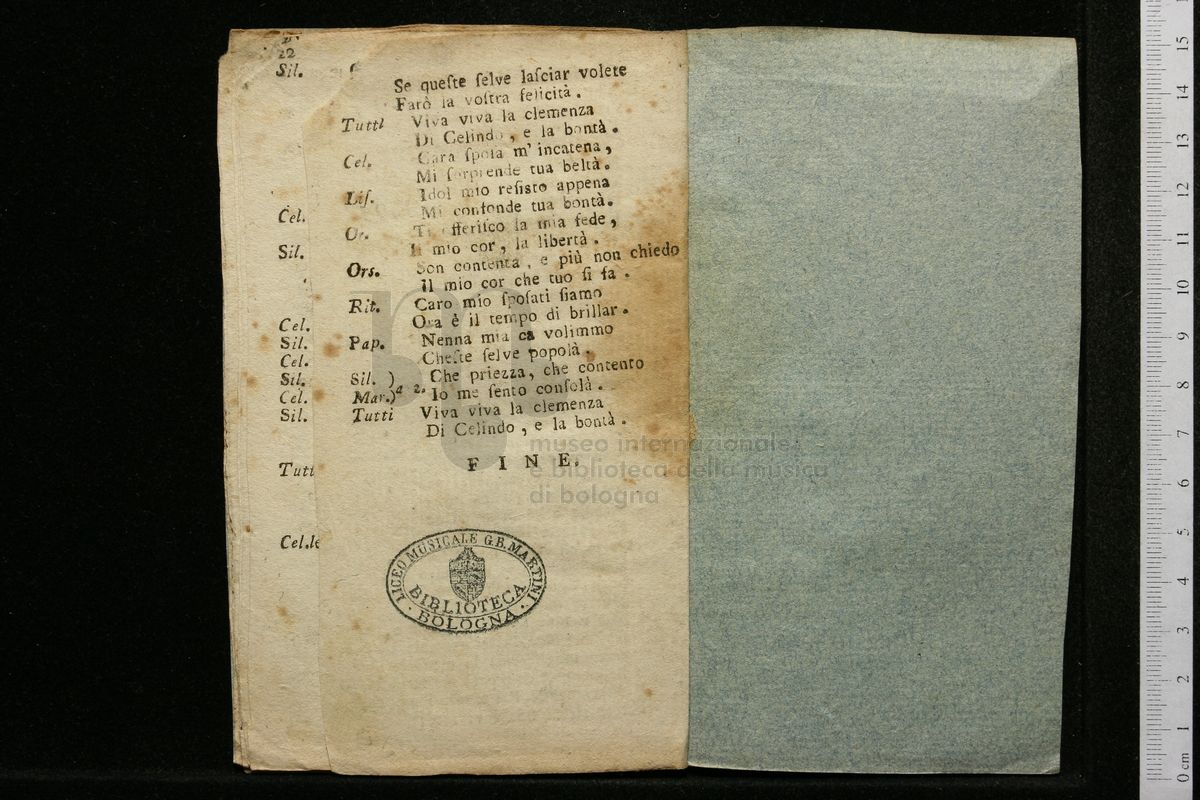 22
Sil.
Cel.
Sil.
Cel.
Sil.
Cel.
Sil.
Cel.
Sil.
Tutt
Cel.le
Se queſte ſelve laſciar volete
Farò la voſtra felicità.
Tutti Viva viva la clemenza
Di Celindo, e la bontà.
Cel. Cara ſpoſa m' incatena,
Mi ſorprende tua beltà.
Liſ. Idol mio reſiſto appena
Mi confonde tua bontà.
Or. Ti offeriſco la mia fede,
Il mio cor, la libertà.
Ors. Son contenta, e più non chiedo
Il mio cor che tuo ſi fa.
Rit. Caro mio ſpoſati ſiamo
Ora è il tempo di brillar.
Pap. Nenna mia ca volimmo
Cheſte ſelve popolà.
Sil. ) Che priezza, che contento
Mar.) a 2. Io me ſento conſolà.
Tutti Viva viva la clemenza
Di Celindo, e la bontà.
FINE.
museo internazionale
e biblioteca della musica
di bologna
LICEO MUSICALE G.B. MARTINI
BIBLIOTECA
· BOLOGNA ·
0 cm 1 2 3 4 5 6 7 8 9 10 11 12 13 14 15